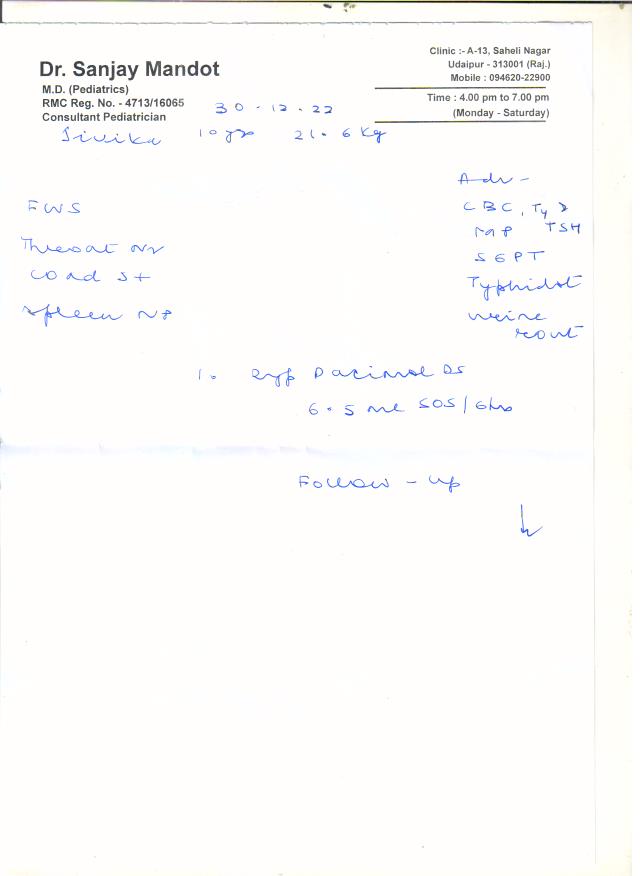 Dr. Sanjay Mandot
M.D. (Pediatrics)
RMC Reg. No. - 4713/16065
Consultant Pediatrician
Clinic :- A-13, Saheli Nagar
Udaipur - 313001 (Raj.)
Mobile : 094620-22900
Time : 4.00 pm to 7.00 pm
(Monday - Saturday)
30-12-22
10 yrs 21.6 Kg
FWS
Throat
spleen
Adv -
CBC,
MP TSH
SGPT
Typhidot
urine
rout
1. Syp Pacimol DS
6.5 ml SOS/6hrs
Follow-up